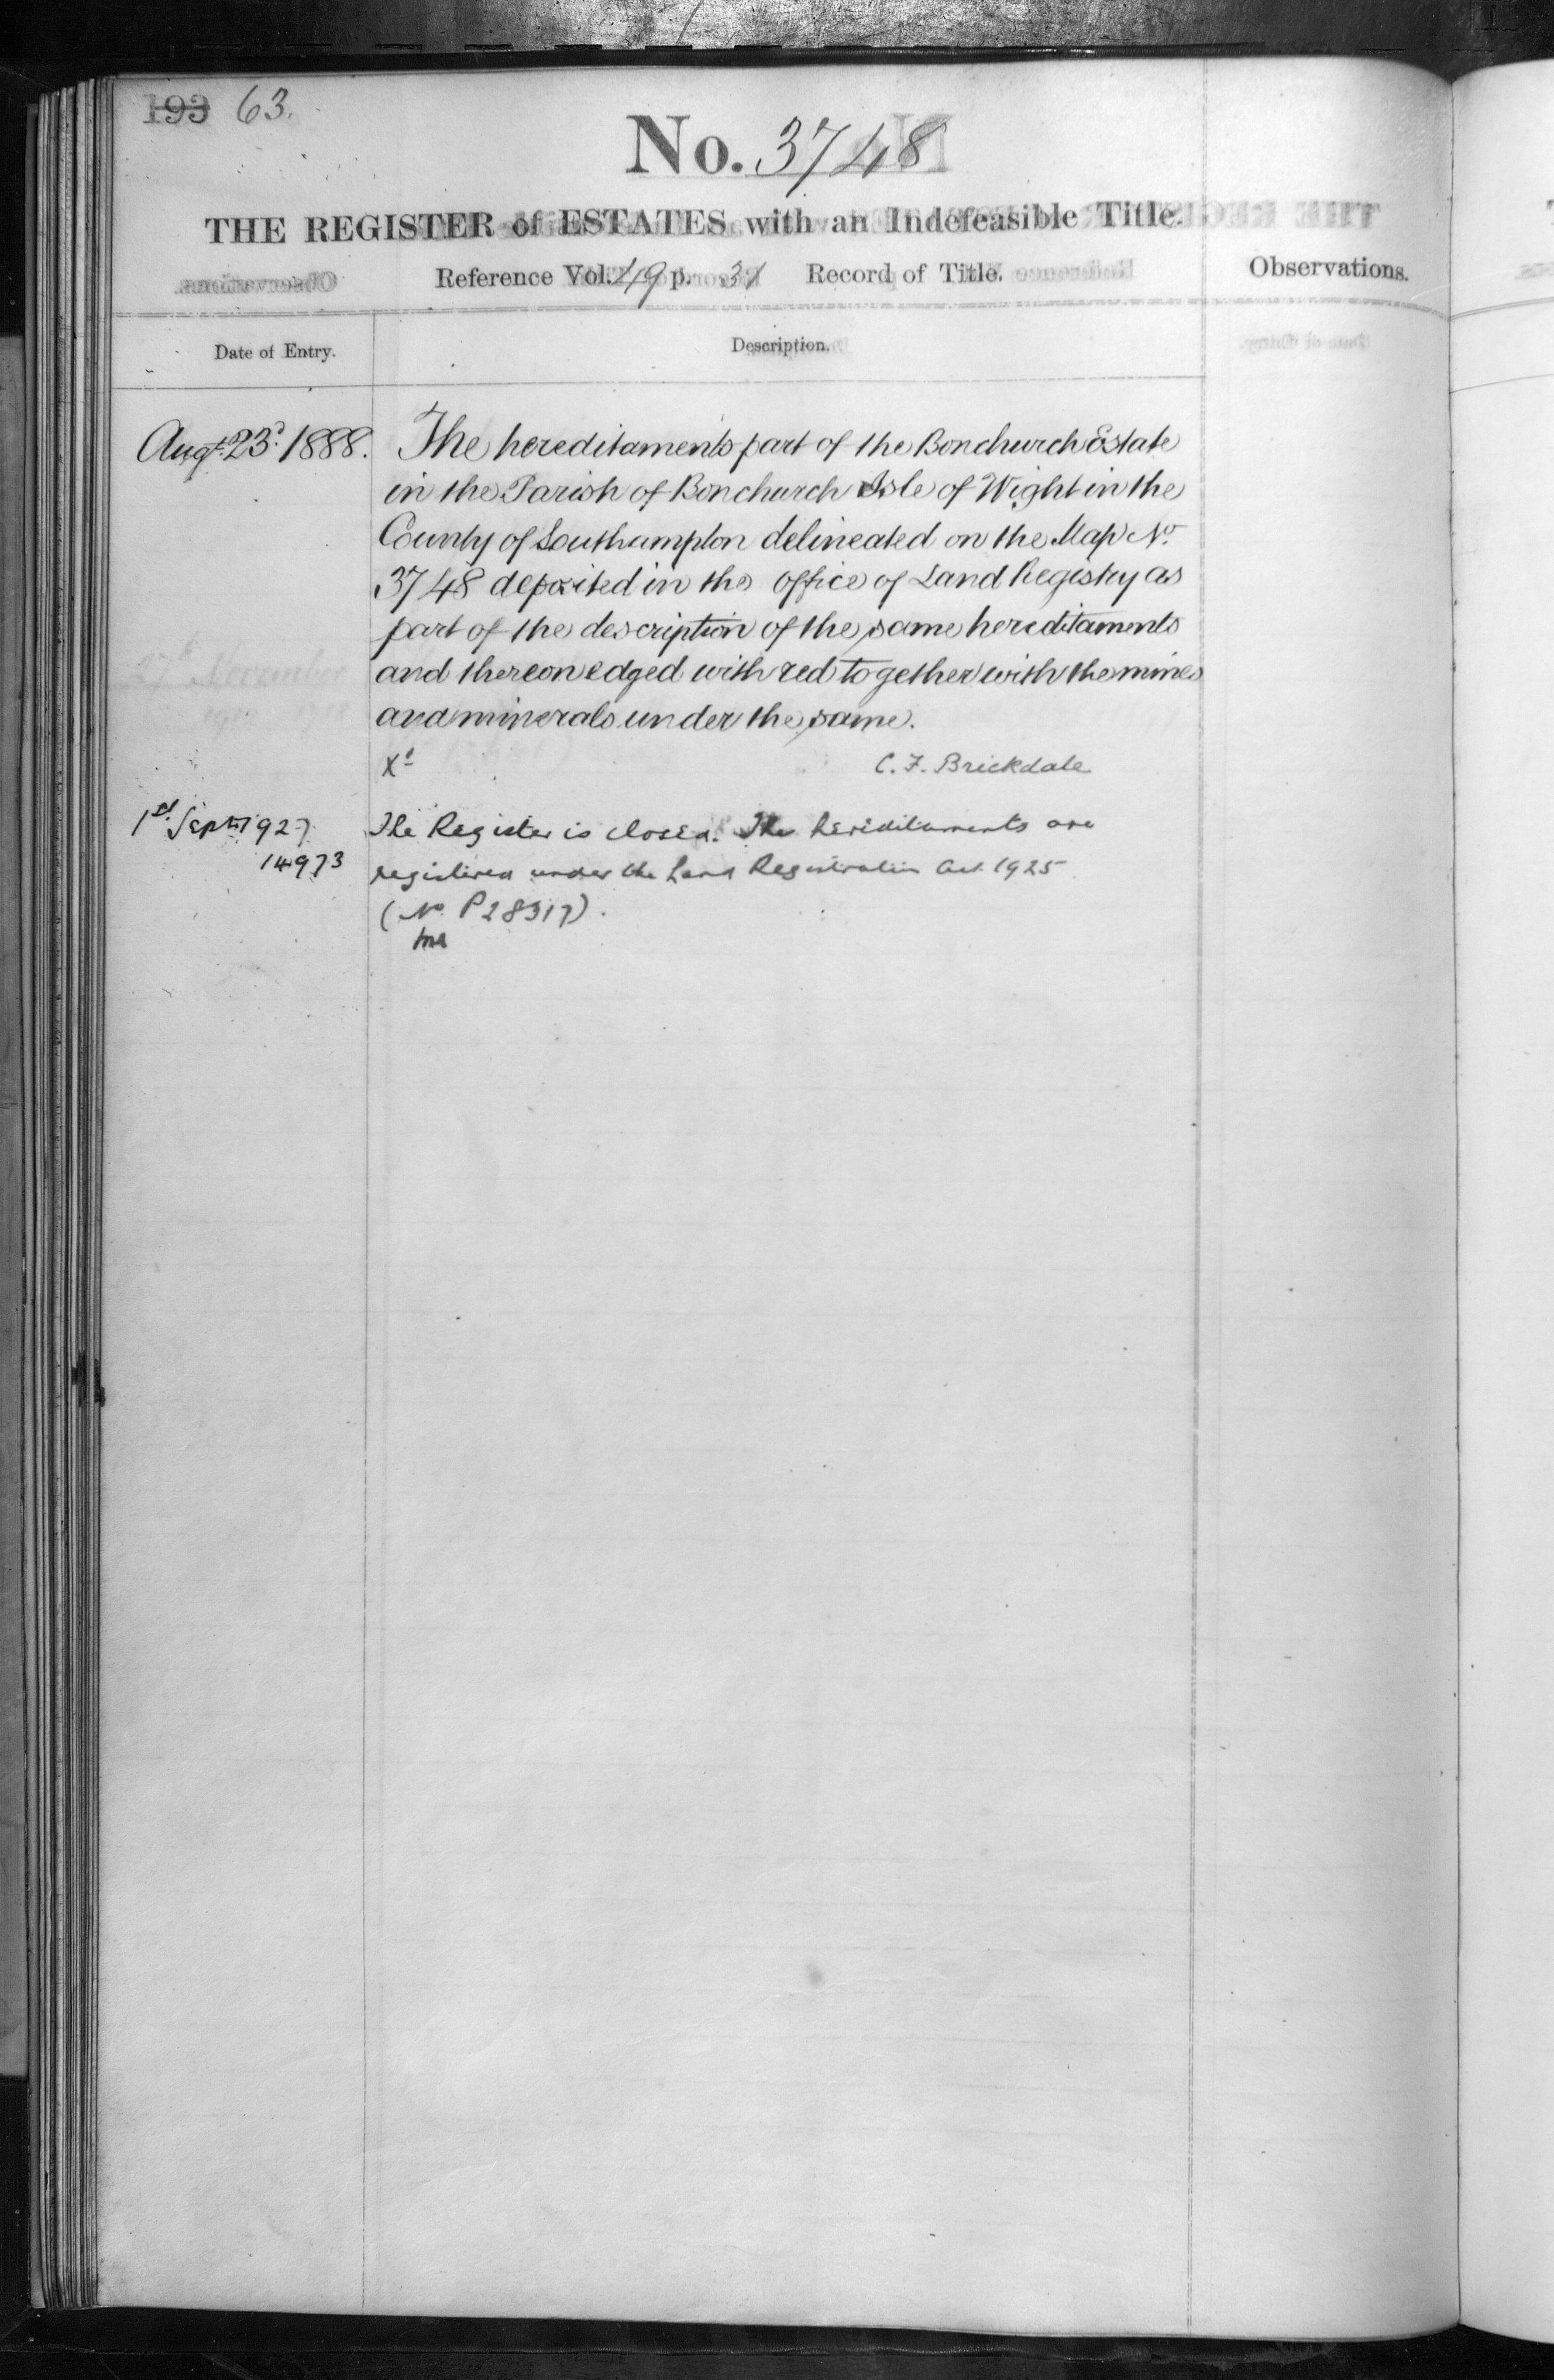 193 63.
No. 3748
THE REGISTER of ESTATES with an Indefeasible Title.
Reference Vol. 49 p. 31 Record of Title.
Observations.
Date of Entry.
Description.
Augt. 23d. 1888.
The hereditaments part of the Bonchurch Estate
in the Parish of Bonchurch Isle of Wight in the
County of Southampton delineated on the Map No.
3748 deposited in the office of Land Registry as
part of the description of the same hereditaments
and thereon edged with red together with the mines
and minerals under the same.
C. F. Brickdale
1st Sept 1927
14973
The Register is closed. The hereditaments are
registered under the Land Registration Act 1925
(No. P28317).